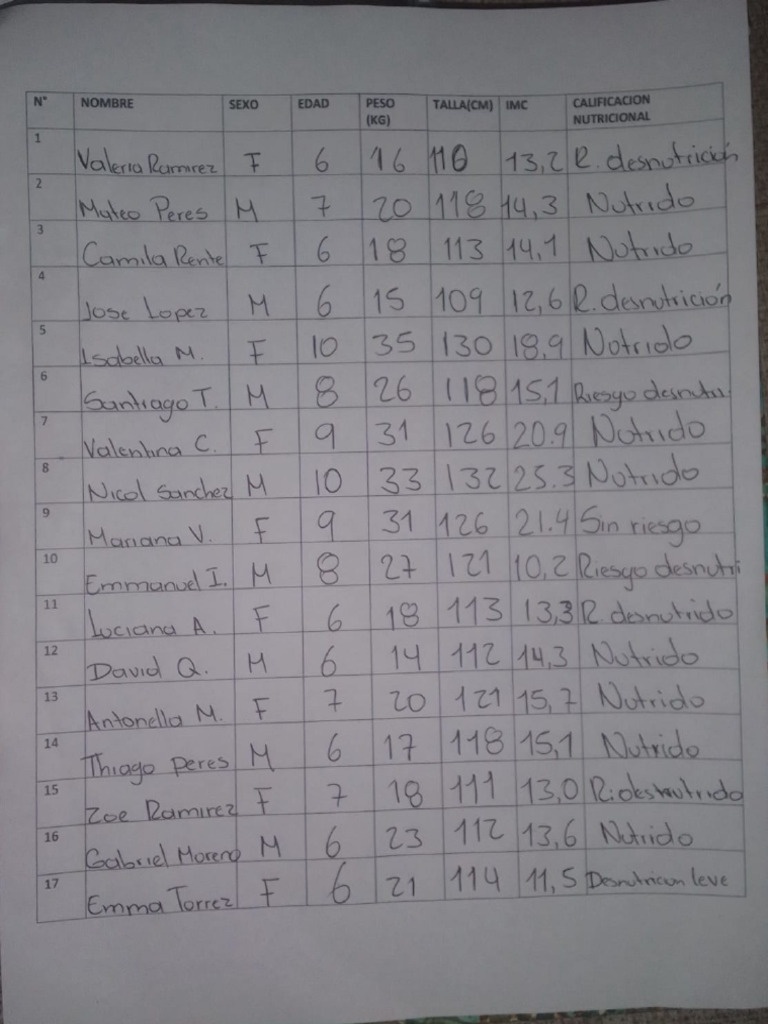 N° NOMBRE SEXO EDAD PESO (KG) TALLA(CM) IMC CALIFICACION NUTRICIONAL
1 Valeria Ramirez F 6 16 110 13,2 R. desnutrición
2 Mateo Peres M 7 20 118 14,3 Nutrido
3 Camila Rente F 6 18 113 14,1 Nutrido
4 Jose Lopez M 6 15 109 12,6 R. desnutrición
5 Isabella M. F 10 35 130 18,9 Nutrido
6 Santiago T. M 8 26 118 15,1 Riesgo desnutri
7 Valentina C. F 9 31 126 20.9 Nutrido
8 Nicol Sanchez M 10 33 132 25.3 Nutrido
9 Mariana V. F 9 31 126 21.4 Sin riesgo
10 Emmanuel I. M 8 27 121 10,2 Riesgo desnutri
11 Luciana A. F 6 18 113 13,3 R. desnutrido
12 David Q. M 6 14 112 14,3 Nutrido
13 Antonella M. F 7 20 121 15,7 Nutrido
14 Thiago peres M 6 17 118 15,1 Nutrido
15 Zoe Ramirez F 7 18 111 13,0
16 Gabriel Moreno M 6 23 112 13,6 Nutrido
17 Emma Torrez F 6 21 114 11,5 Desnutricun leve